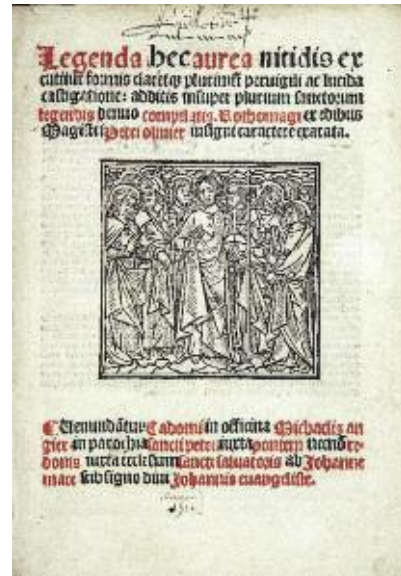 Legenda hec aurea nitidis ex
cutitur formis claretq; plurimũ peruigili ac lucida
castigatione: additis insuper plurium sanctorum
legendis denuo compilatis. Rothomagi ex edibus
Magistri Petri oliuier insigni caractere exarata.
Uenundãtur Cadomi in officina Michaelis an
gier in parochia sancti petri iuxta pontem necnõ re-
donis iuxta ecclesiam sancti saluatoris ab Johanne
mace sub signo diui Johannis euangeliste.